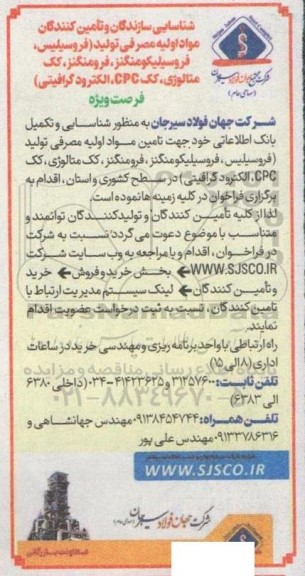 شناسایی سازندگان و تأمین کنندگان
مواد اولیه مصرفی تولید (فروسیلیس،
فروسیلیکومنگنز، فرومنگنز، کک
متالوژی، کک CPC، الکترود گرافیتی)
فرصت ویژه
شرکت جهان فولاد سیرجان
(سهامی عام)
شرکت جهان فولاد سیرجان به منظور شناسایی و تکمیل
بانک اطلاعاتی خود جهت تامین مواد اولیه مصرفی تولید
(فروسیلیس، فروسیلیکومنگنز، فرومنگنز، کک متالوژی، کک
CPC، الکترود گرافیتی) در سطح کشوری و استان، اقدام به
برگزاری فراخوان در کلیه زمینه ها نموده است.
لذا از کلیه تأمین کنندگان و تولیدکنندگان توانمند و
متناسب با موضوع دعوت می گردد؛ نسبت به شرکت
در فراخوان، اقدام و با مراجعه به وب سایت شرکت
WWW.SJSCO.IR ← بخش خرید و فروش ← خرید
و تأمین کنندگان ← لینک سیستم مدیریت ارتباط با
تامین کنندگان، نسبت به ثبت درخواست عضویت اقدام
نمایند.
راه ارتباطی با واحد برنامه ریزی و مهندسی خرید در ساعات
اداری (۸ الی ۱۵)
تلفن ثابت: ۳۱۲۵۷۶۰۰ و ۴۱۴۲۳۶۲۵-۰۳۴ (داخلی ۶۳۸۰
الی ۶۳۸۳)
تلفن همراه: ۰۹۱۳۸۴۵۴۷۴۴ مهندس جهانشاهی و
۰۹۱۳۳۷۸۶۳۱۶ مهندس علی پور
WWW.SJSCO.IR
شرکت جهان فولاد سیرجان
(سهامی عام)
معاونت بازرگانی